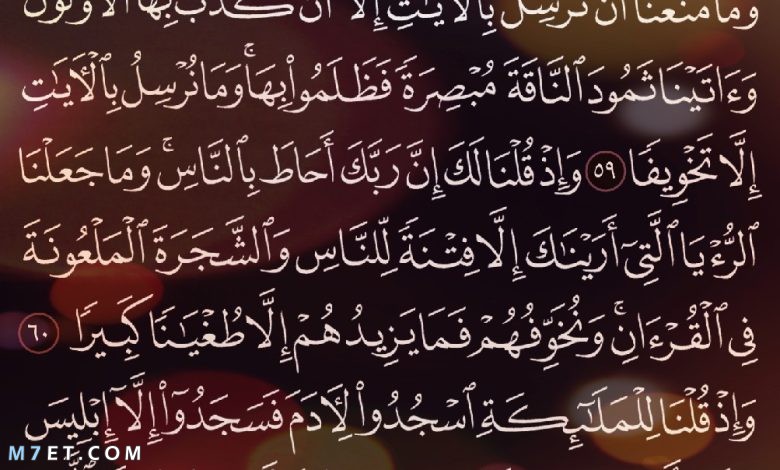 وَمَا مَنَعَنَا أَن نُّرْسِلَ بِالْآيَاتِ إِلَّا أَن كَذَّبَ بِهَا الْأَوَّلُونَ
وَءَاتَيْنَا ثَمُودَ ٱلنَّاقَةَ مُبْصِرَةً فَظَلَمُوا۟ بِهَا ۚ وَمَا نُرْسِلُ بِٱلْـَٔايَـٰتِ
إِلَّا تَخْوِيفًا ٥٩ وَإِذْ قُلْنَا لَكَ إِنَّ رَبَّكَ أَحَاطَ بِٱلنَّاسِ ۚ وَمَا جَعَلْنَا
ٱلرُّءْيَا ٱلَّتِىٓ أَرَيْنَـٰكَ إِلَّا فِتْنَةً لِّلنَّاسِ وَٱلشَّجَرَةَ ٱلْمَلْعُونَةَ
فِى ٱلْقُرْءَانِ ۚ وَنُخَوِّفُهُمْ فَمَا يَزِيدُهُمْ إِلَّا طُغْيَـٰنًا كَبِيرًا ٦٠
وَإِذْ قُلْنَا لِلْمَلَـٰٓئِكَةِ ٱسْجُدُوا۟ لِـَٔادَمَ فَسَجَدُوٓا۟ إِلَّآ إِبْلِيسَ
M7ET.COM